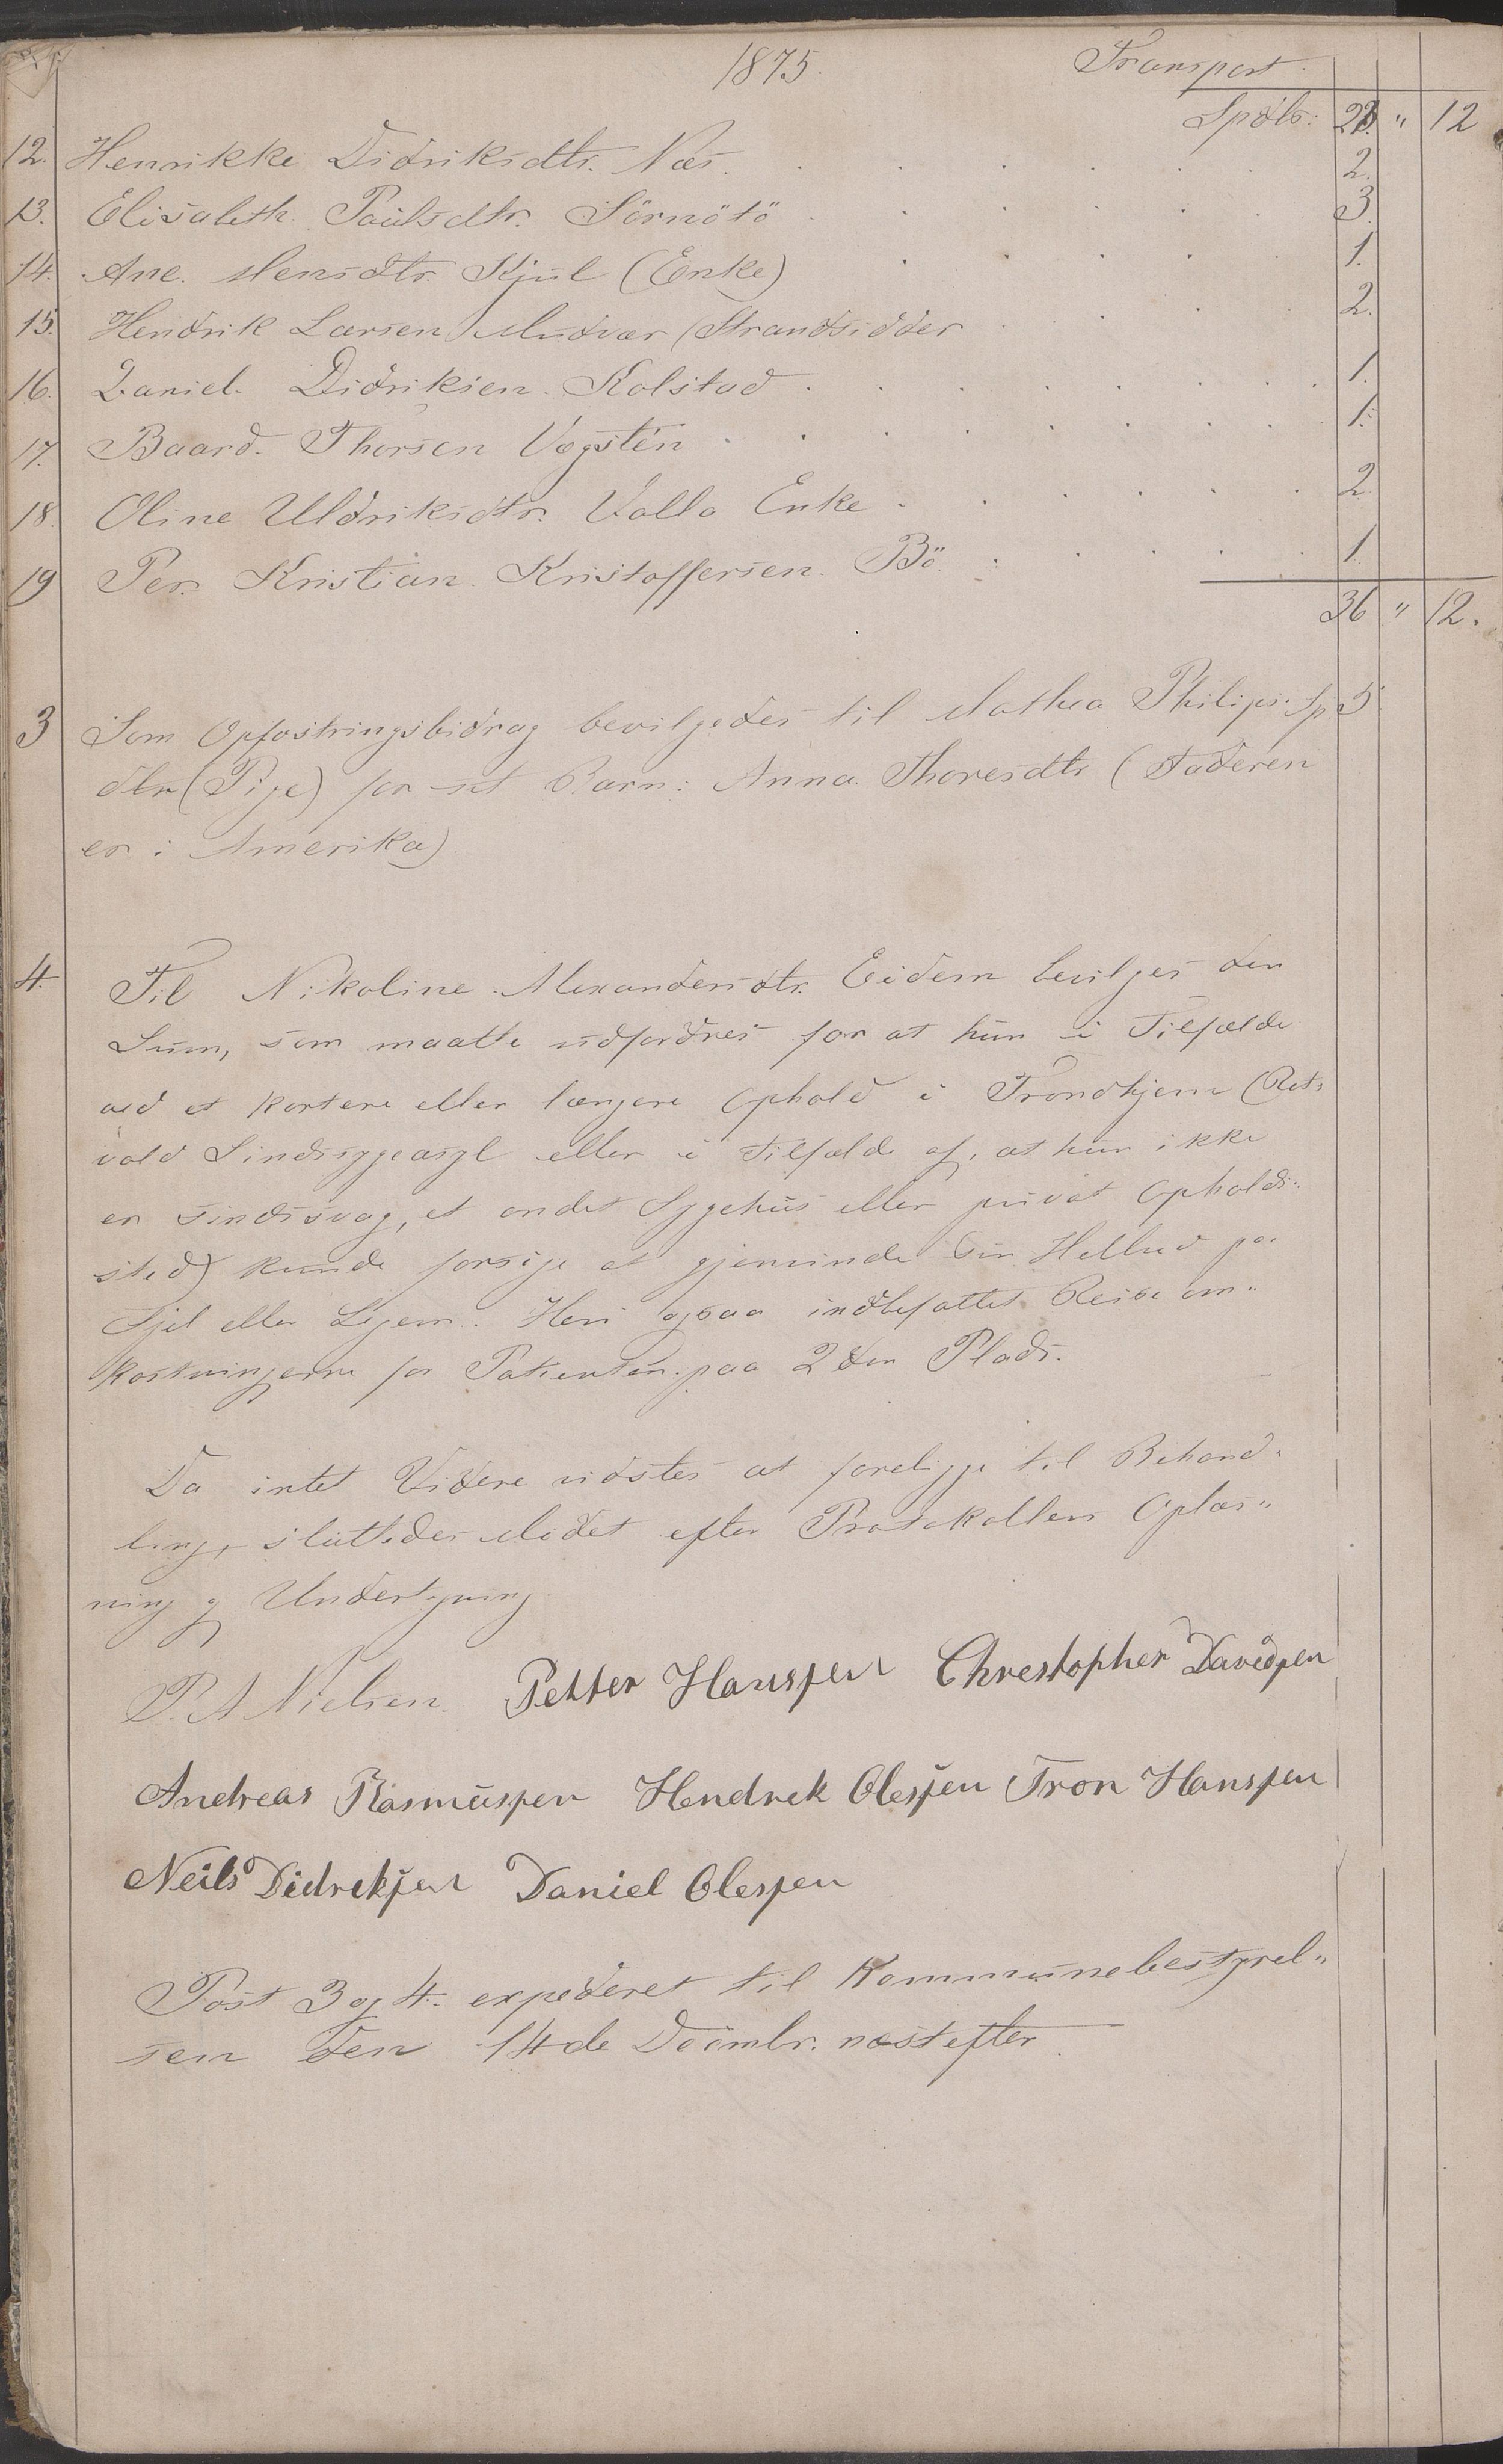 1875. Transport
Spdlr: 23. " 12
12. Henrikke Didriksdtr. Næs. 2.
13. Elisabeth Paulsdtr. Sörnötö 3.
14. Ane Mensdtr. Kjul (Enke) 1.
15. Hendrik Larsen Mudvær (Strandsidder 2.
16. Daniel Didriksen Kolstad 1.
17. Baard Thorsen Vegsten 1.
18. Oline Uldriksdtr. Valla Enke 2
19 Per Kristian Kristoffersen Bö 1.
36 " 12.
3 Som Opfostringsbidrag bevilgedes til Mathea Philips- Sp 5
dtr (Pige) for sit Barn: Anna Thoresdtr (Faderen
er i Amerika)
4. Til Nikoline Alexandersdtr. Eidem bevilges den
Sum, som maatte udfordres for at hun i Tilfælde
ved et kortere eller længere Ophold i Trondhjem (Rot-
vold Sindsygeasyl eller i Tilfælde af, at hun ikke
er sindssvag, et andet Sygehus eller privat Opholds-
sted) kunde forsøge at gjenvinde sin Helbred paa
Sjel eller Legem. Heri ogsaa indbefattet Reiseom-
kostningerne for Patienten paa 2den Plads.
Da intet Videre vidstes at foreligge til Behand-
ling, sluttedes Mødet efter Protokollens Oplæs-
ning og Undertegning
P. A Nielsen. Petter Hanssen Chrestopher Davedsen
Andreas Rasmussen Hendrek Olessen Tron Hanssen
Neils Diedreksen Daniel Olessen
Post 3 og 4. expederet til Kommunebestyrel-
sen den 14de Decmbr. næstefter.